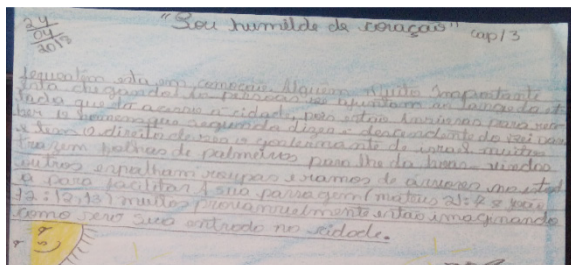 24
04
2018
"Sou humilde de coração" cap/3
Jerusalém esta em comoção. Alguém muito importante
esta chegando! as pessoas se ajuntam ao longo da est
rada que da acesso a cidade, pois estão ansiosas para rece
ber o homem que segundo dizem e descendente do rei Davi
e tem o direito de ser o governante de israel muitos
trazem folhas de palmeiras para lhe da boas vindas
outros espalham roupas e ramos de árvores na estrad
a para facilitar sua passagem (mateus 21:7,8 joão
12:12,13) muitos provavelmente estão imaginando
como sera sua entrada na cidade.